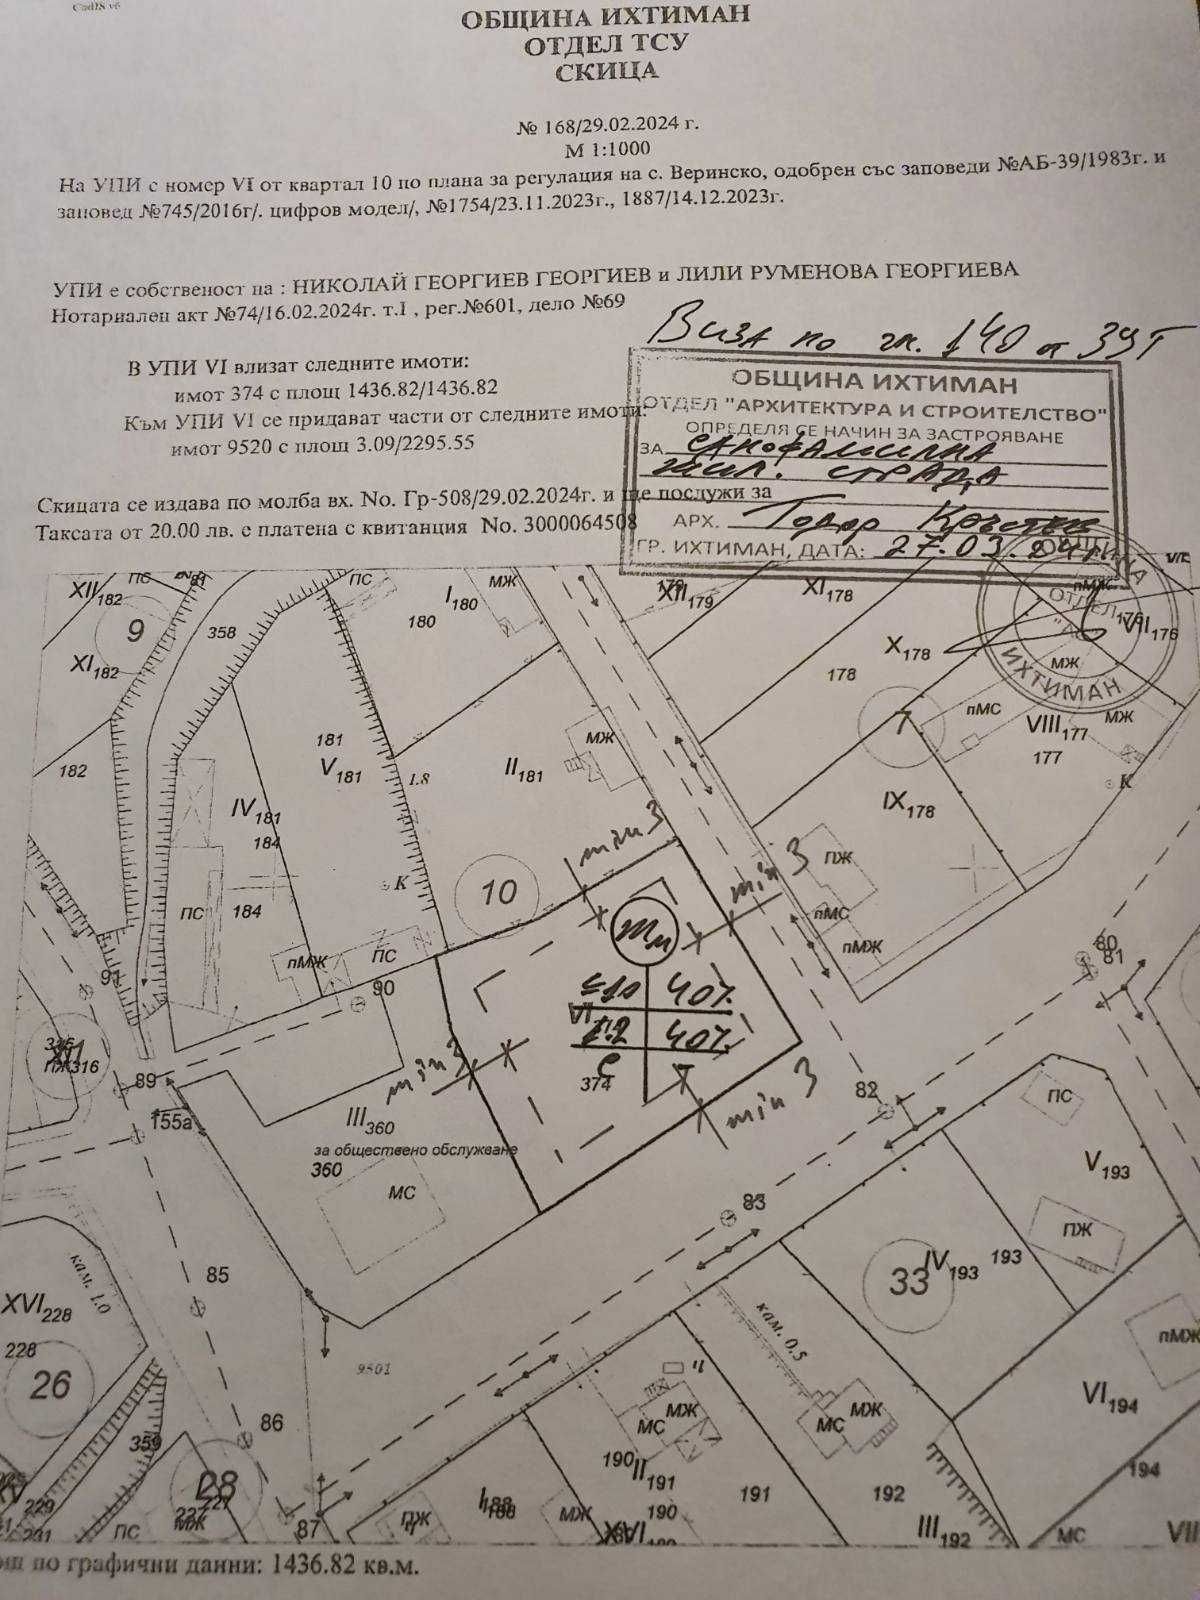 CadIS v6
ОБЩИНА ИХТИМАН
ОТДЕЛ ТСУ
СКИЦА
№ 168/29.02.2024 г.
М 1:1000
На УПИ с номер VI от квартал 10 по плана за регулация на с. Веринско, одобрен със заповеди №АБ-39/1983г. и
заповед №745/2016г/. цифров модел/, №1754/23.11.2023г., 1887/14.12.2023г.
УПИ е собственост на : НИКОЛАЙ ГЕОРГИЕВ ГЕОРГИЕВ и ЛИЛИ РУМЕНОВА ГЕОРГИЕВА
Нотариален акт №74/16.02.2024г. т.I , рег.№601, дело №69
Виза по чл. 140 от ЗУТ
В УПИ VI влизат следните имоти:
имот 374 с площ 1436.82/1436.82
Към УПИ VI се придават части от следните имоти:
имот 9520 с площ 3.09/2295.55
ОБЩИНА ИХТИМАН
ОТДЕЛ "АРХИТЕКТУРА И СТРОИТЕЛСТВО"
ОПРЕДЕЛЯ СЕ НАЧИН ЗА ЗАСТРОЯВАНЕ
ЗА еднофамилна
жил. сграда
АРХ. Тодор Кръстев
ГР. ИХТИМАН, ДАТА: 27.03.24г
Скицата се издава по молба вх. No. Гр-508/29.02.2024г. и ще послужи за
Таксата от 20.00 лв. е платена с квитанция No. 3000064508
ОБЩИНА
ОТДЕЛ
"АС"
ИХТИМАН
XII182
ПС
9
358
ПС
I180
180
МЖ
179
XII179
XI178
пМЖ
176
VII176
XI182
X178
178
МЖ
182
181
V181
1.8
II181
МЖ
7
пМС
VIII177
177
МЖ
К
IV181
184
184
ПС
К
10
IX178
ПЖ
пМС
пМЖ
min 3
min 3
Жм
≤10 40%
VI
1.2 40%
С
374
min 3
min 3
пМЖ
ПС
90
91
80
81
316
ПЖ316
89
155а
III360
за обществено обслужване
360
МС
82
ПС
V193
83
ПЖ
33
IV193
193
85
кам. 1.0
XVI228
228
26
кам. 0.5
9501
пМЖ
VI194
194
86
359
28
227
МЖ
229
231
ПС
87
ПЖ
Ч
I188
188
МЖ
МС
МЖ
190
II191
190
XVI
191
МС
МЖ
192
III192
МС
VII
по графични данни: 1436.82 кв.м.